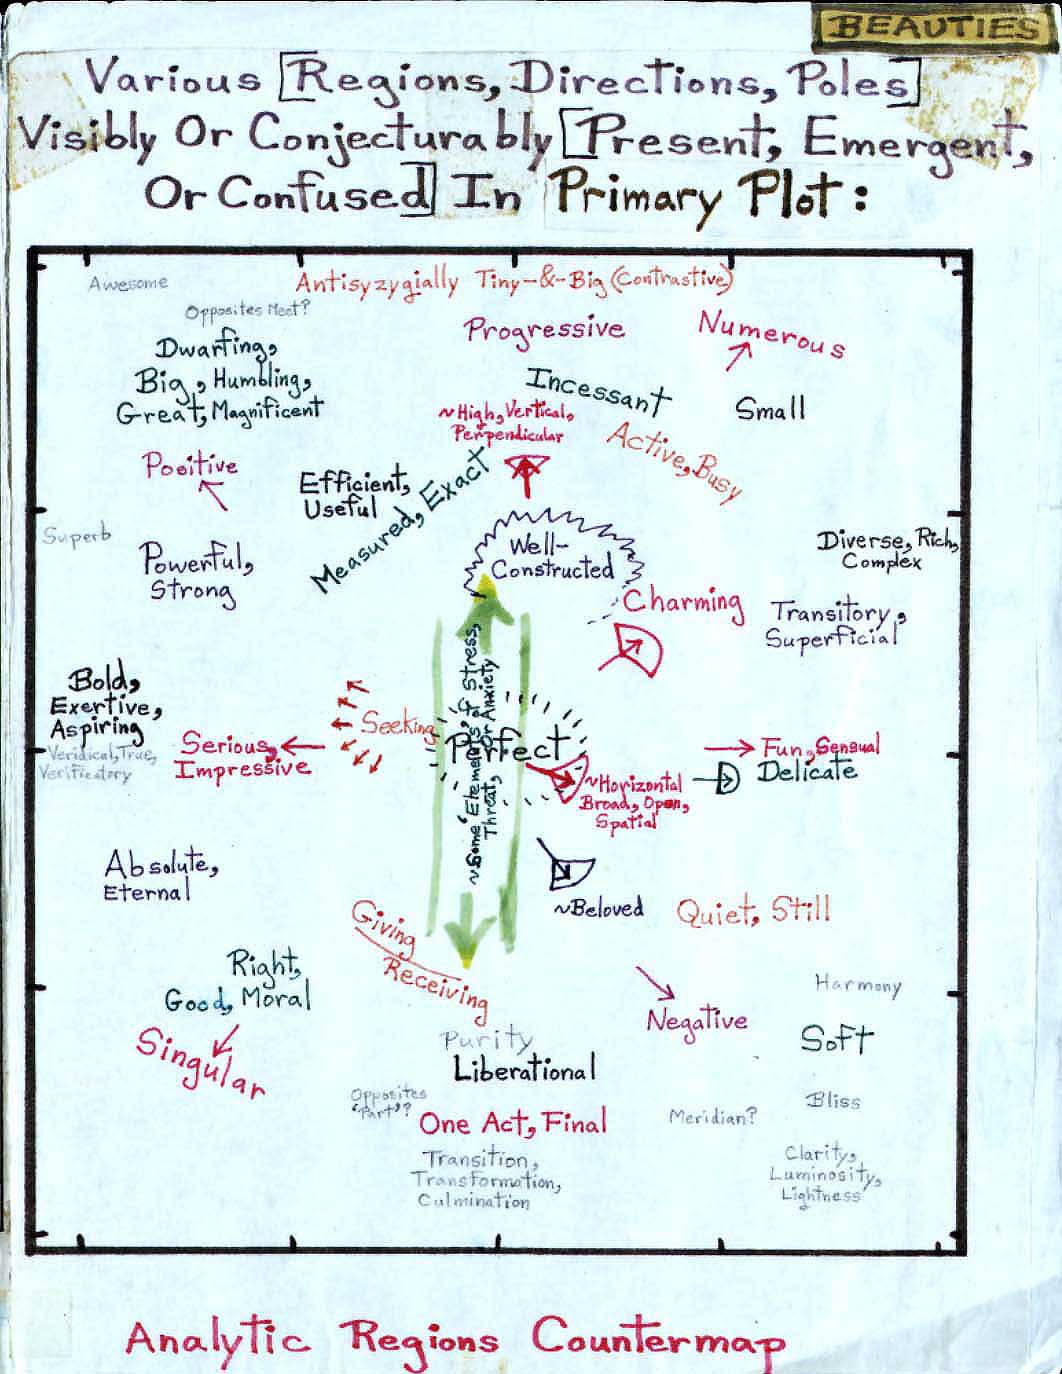 BEAUTIES
Various [Regions, Directions, Poles]
Visibly Or Conjecturably [Present, Emergent,
Or Confused] In Primary Plot:
Awesome
Antisyzygially Tiny-&-Big (Contrastive)
Opposites Meet?
Dwarfing,
Big, Humbling,
Great, Magnificent
Progressive
Numerous
Incessant
Small
~High, Vertical,
Perpendicular
Active, Busy
Positive
Efficient,
Useful
Measured, Exact
Superb
Powerful,
Strong
Well-
Constructed
Diverse, Rich,
Complex
Charming
Transitory,
Superficial
Bold,
Exertive,
Aspiring
Veridical, True,
Verificatory
Serious,
Impressive
Seeking
Perfect
~Some Elements of Stress,
Threat, Or Anxiety
~Horizontal
Broad, Open,
Spatial
Fun, Sensual
Delicate
Absolute,
Eternal
~Beloved
Quiet, Still
Giving
Receiving
Right,
Good, Moral
Singular
Harmony
Negative
Soft
Purity
Liberational
Opposites
"Part"?
One Act, Final
Meridian?
Bliss
Transition,
Transformation,
Culmination
Clarity,
Luminosity,
Lightness
Analytic Regions Countermap